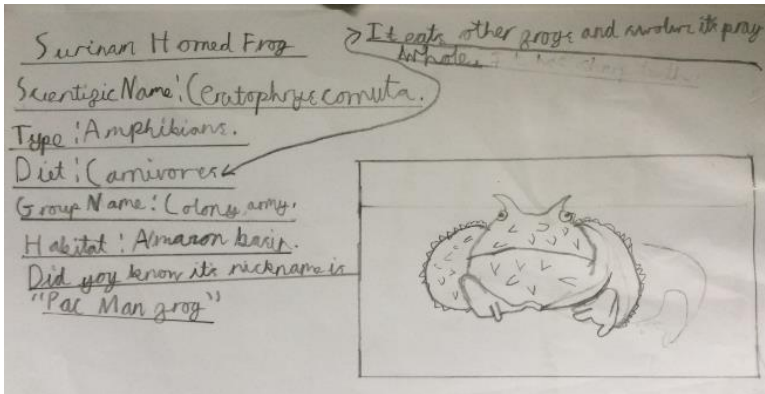 Surinam Horned Frog
Scientific Name: Ceratophrys cornuta.
Type: Amphibians.
Diet: Carnivores
Group Name: Colony, army.
Habitat: Amazon basin.
Did you know its nickname is
"Pac Man frog"
It eats other frogs and its pray
whole.